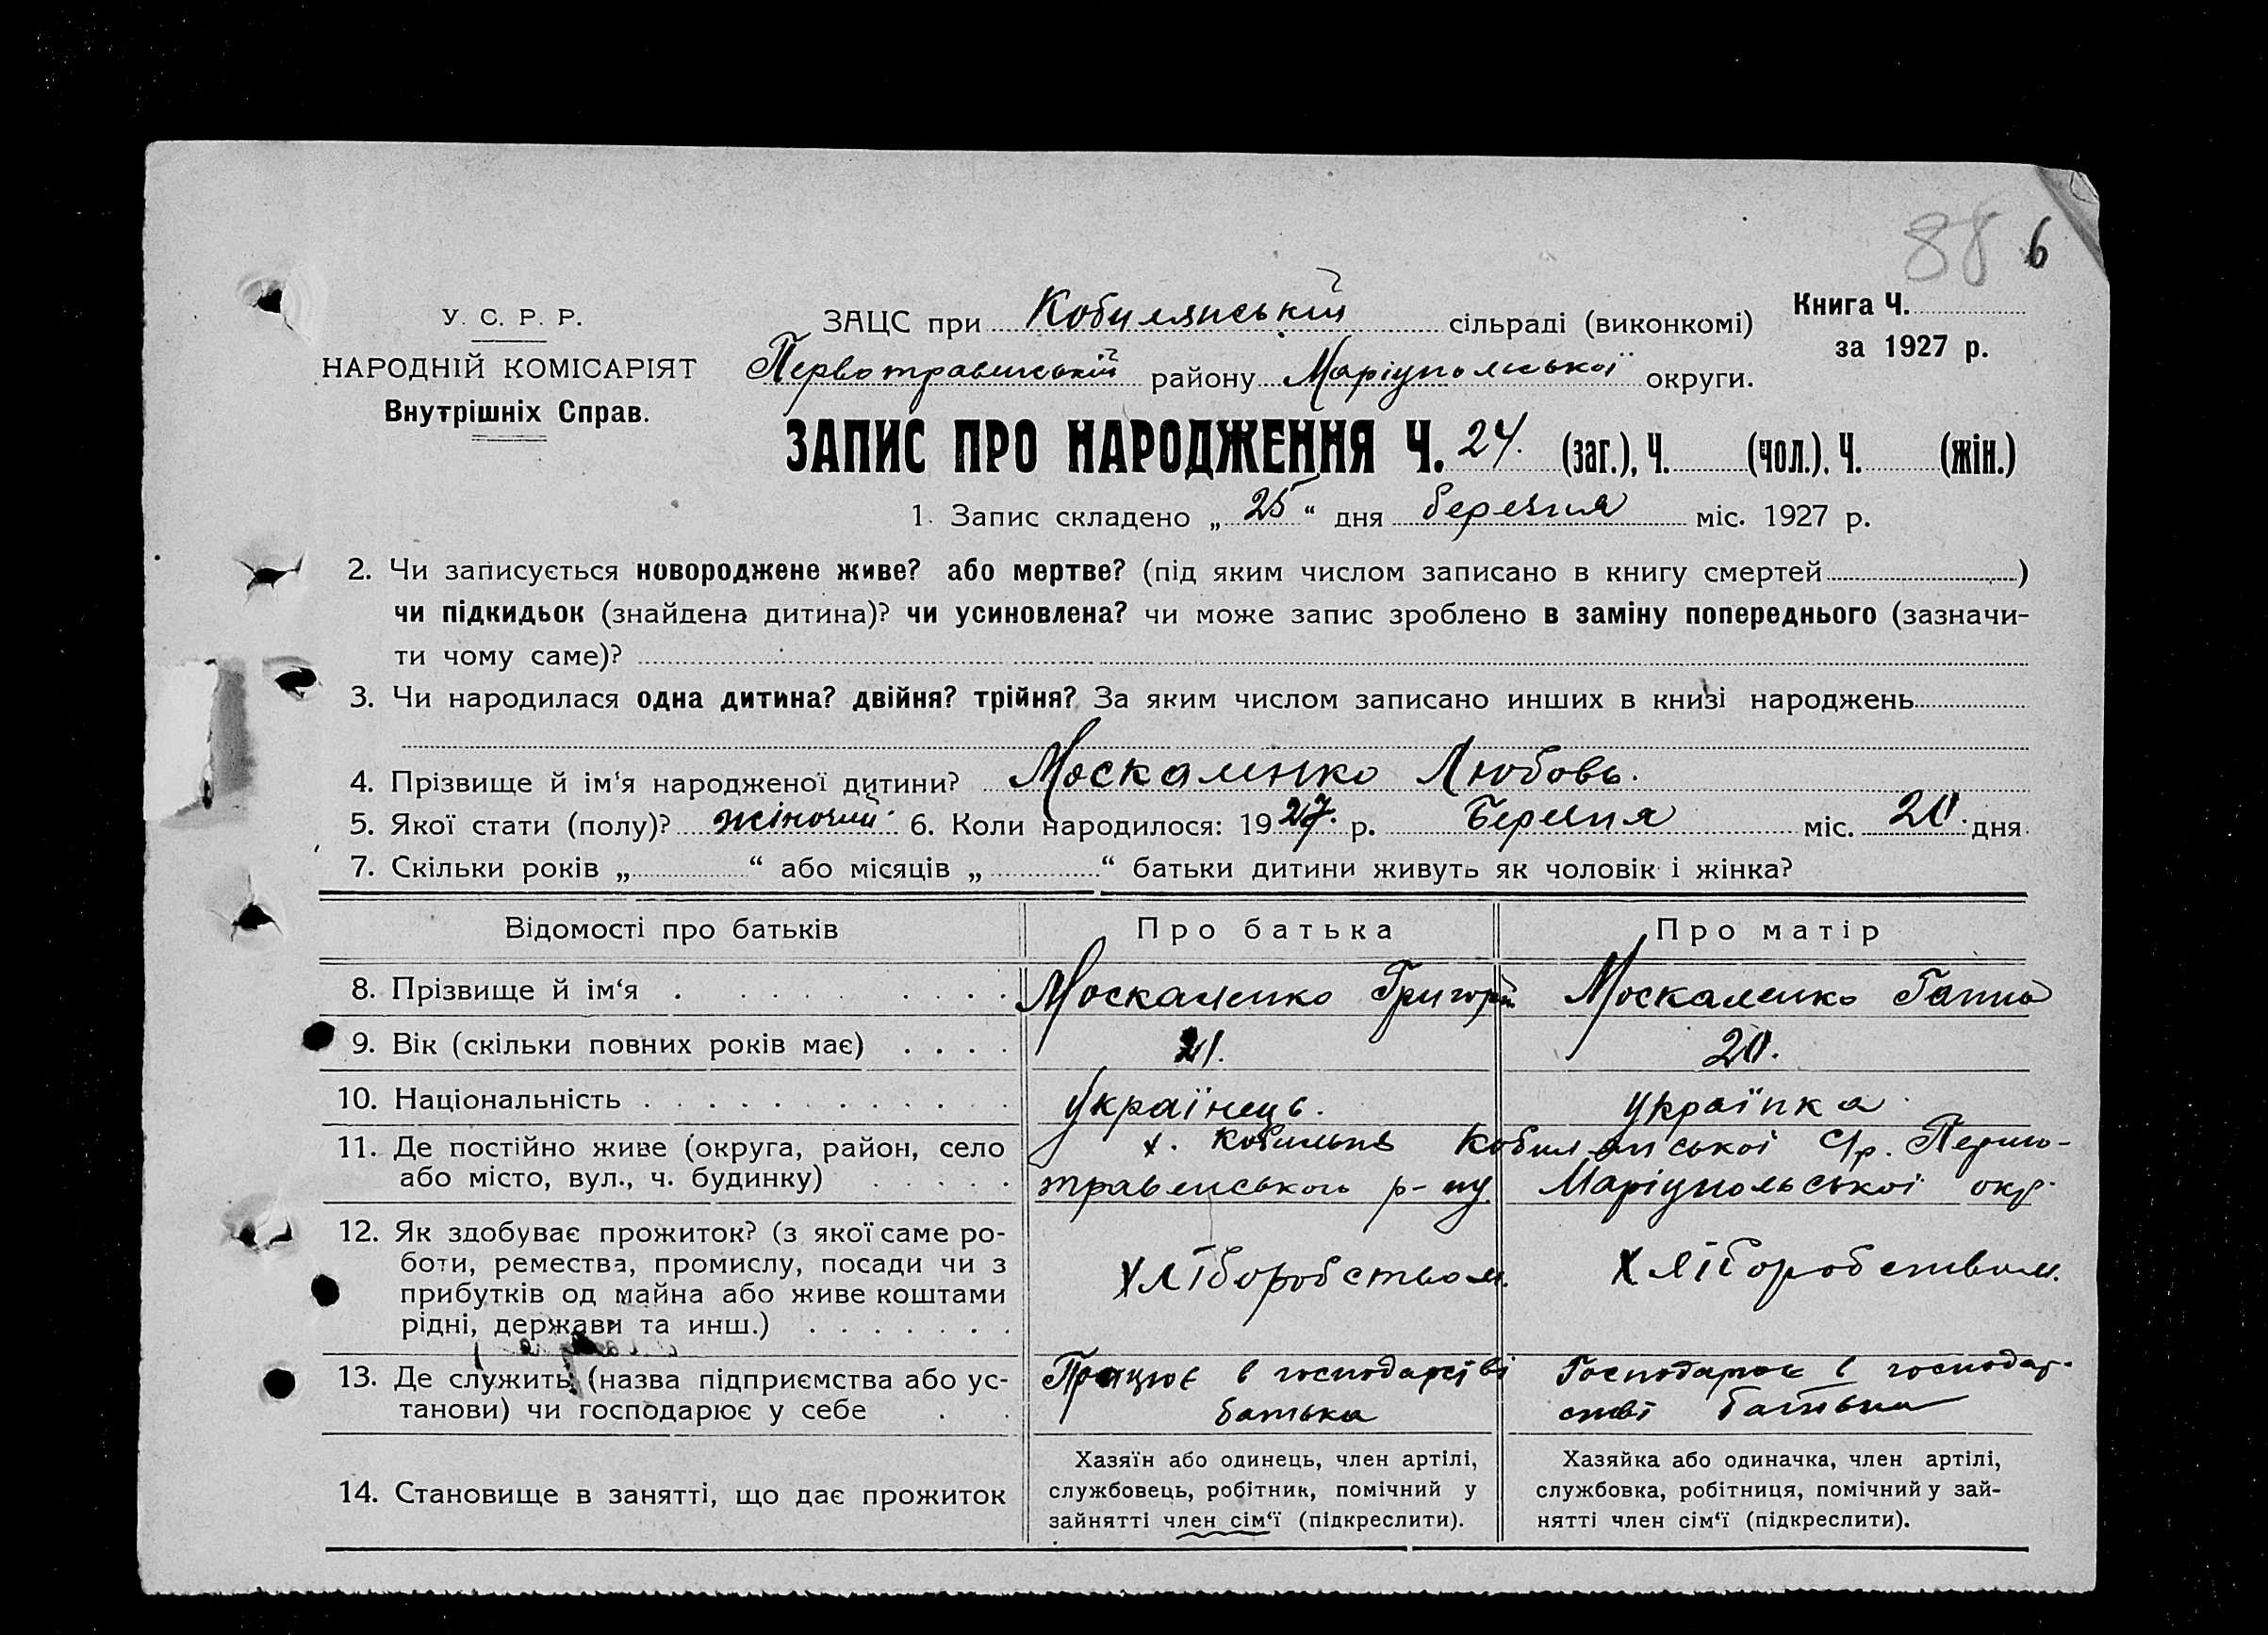 88 6
У. С. Р. Р.
НАРОДНІЙ КОМІСАРІЯТ
Внутрішніх Справ.
ЗАЦС при Кобилянській сільраді (виконкомі)
Первотравенській району Маріупольської округи.
Книга Ч.
за 1927 р.
ЗАПИС ПРО НАРОДЖЕННЯ Ч. 24. (заг.), Ч. (чол.). Ч. (жін.)
1. Запис складено „ 25 “ дня березня міс. 1927 р.
2. Чи записується новороджене живе? або мертве? (під яким числом записано в книгу смертей )
чи підкидьок (знайдена дитина)? чи усиновлена? чи може запис зроблено в заміну попереднього (зазначи-
ти чому саме)?
3. Чи народилася одна дитина? двійня? трійня? За яким числом записано инших в книзі народжень
4. Прізвище й ім'я народженої дитини? Москаленко Любовь.
5. Якої стати (полу)? жіночий 6. Коли народилося: 1927. р. Березня міс. 20. дня
7. Скільки років „ “ або місяців „ “ батьки дитини живуть як чоловік і жінка?
Відомості про батьків Про батька Про матір
8. Прізвище й ім'я Москаленко Григорій Москаленко Ганна
9. Вік (скільки повних років має) 21. 20.
10. Національність українець. українка
11. Де постійно живе (округа, район, село х. Кобильне Кобилянської С/р. Першо-
або місто, вул., ч. будинку) травенського р-ну Маріупольської окр.
12. Як здобуває прожиток? (з якої саме ро-
боти, ремества, промислу, посади чи з
прибутків од майна або живе коштами
рідні, держави та инш.)
хліборобством. хліборобством.
13. Де служить (назва підприємства або ус- Працює в господарстві Господарює в господар-
танови) чи господарює у себе батька стві батька
14. Становище в занятті, що дає прожиток
Хазяїн або одинець, член артілі,
службовець, робітник, помічний у
зайнятті член сім'ї (підкреслити).
Хазяйка або одиначка, член артілі,
службовка, робітниця, помічний у зай-
нятті член сім'ї (підкреслити).